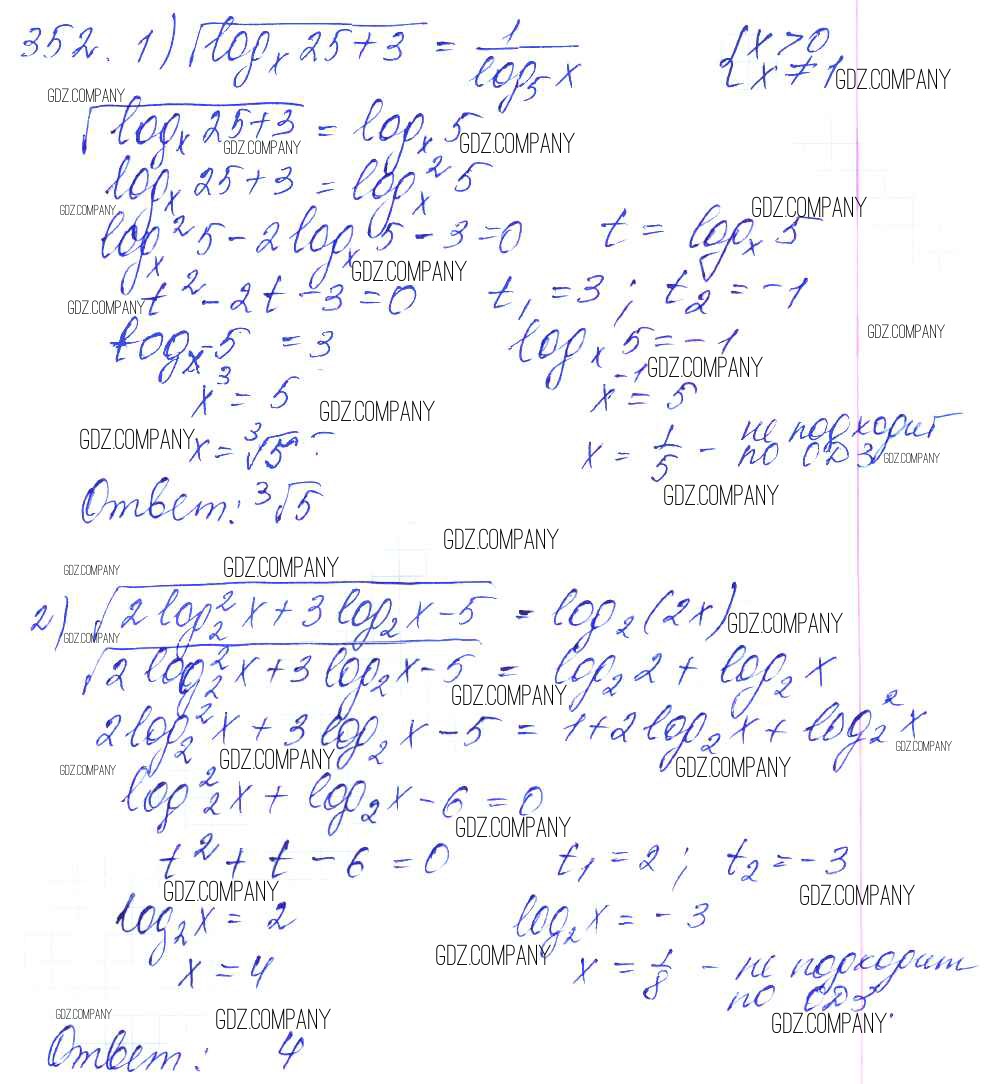 352. 1) √(logₓ 25 + 3) = 1/(log₅ x) { x > 0
x ≠ 1 GDZ.COMPANY
GDZ.COMPANY
√(logₓ 25 + 3) = logₓ 5 GDZ.COMPANY
GDZ.COMPANY
logₓ 25 + 3 = logₓ² 5
GDZ.COMPANY GDZ.COMPANY
logₓ² 5 - 2 logₓ 5 - 3 = 0 t = logₓ 5
GDZ.COMPANY
GDZ.COMPANY t² - 2t - 3 = 0 t₁ = 3 ; t₂ = -1
GDZ.COMPANY
logₓ 5 = 3 logₓ 5 = -1
GDZ.COMPANY
x³ = 5 x⁻¹ = 5
GDZ.COMPANY
GDZ.COMPANY x = ³√5 x = 1/5 - не подходит
по ОДЗ GDZ.COMPANY
GDZ.COMPANY
Ответ: ³√5
GDZ.COMPANY
GDZ.COMPANY GDZ.COMPANY
2) √(2 log₂² x + 3 log₂ x - 5) = log₂ (2x) GDZ.COMPANY
GDZ.COMPANY
√(2 log₂² x + 3 log₂ x - 5) = log₂ 2 + log₂ x
GDZ.COMPANY
2 log₂² x + 3 log₂ x - 5 = 1 + 2 log₂ x + log₂² x
GDZ.COMPANY GDZ.COMPANY GDZ.COMPANY
GDZ.COMPANY
log₂² x + log₂ x - 6 = 0
GDZ.COMPANY
t² + t - 6 = 0 t₁ = 2 ; t₂ = -3
GDZ.COMPANY GDZ.COMPANY
log₂ x = 2 log₂ x = -3
GDZ.COMPANY
x = 4 x = 1/8 - не подходит
по ОДЗ.
GDZ.COMPANY GDZ.COMPANY GDZ.COMPANY
Ответ: 4